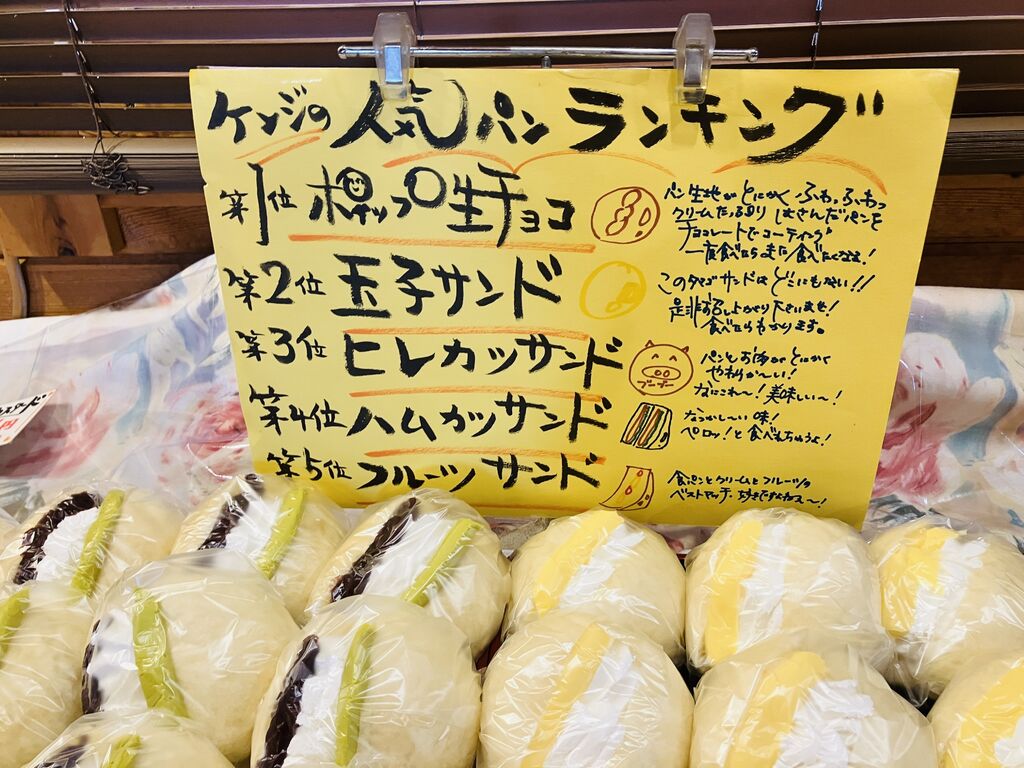 ケンジの人気パンランキング
第1位 ホイップ生チョコ
パン生地がとにかく ふわっふわっ
クリームたっぷりはさんだパンを
チョコレートでコーティング
一度食べたらまた食べたくなるよ!
第2位 玉子サンド
このタマゴサンドはどこにもない!!
是非お召し上がり下さいませ!
食べたらわかります。
第3位 ヒレカツサンド
ブーブー
パンとお肉がとにかく
やわらか〜い!
なにこれ〜!美味しい〜!
第4位 ハムカツサンド
なつかし〜い味!
ペロッ!と食べれちゃうよ!
第5位 フルーツサンド
食パンとクリームとフルーツの
ベストマッチ、
円